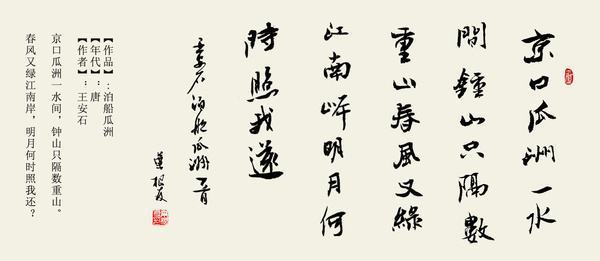 京口瓜洲一水
間鍾山只隔數
重山春風又綠
江南岸明月何
時照我還
王安石泊船瓜洲一首
【作品】:泊船瓜洲
【年代】:唐
【作者】:王安石
京口瓜洲一水间，钟山只隔数重山。
春风又绿江南岸，明月何时照我还？